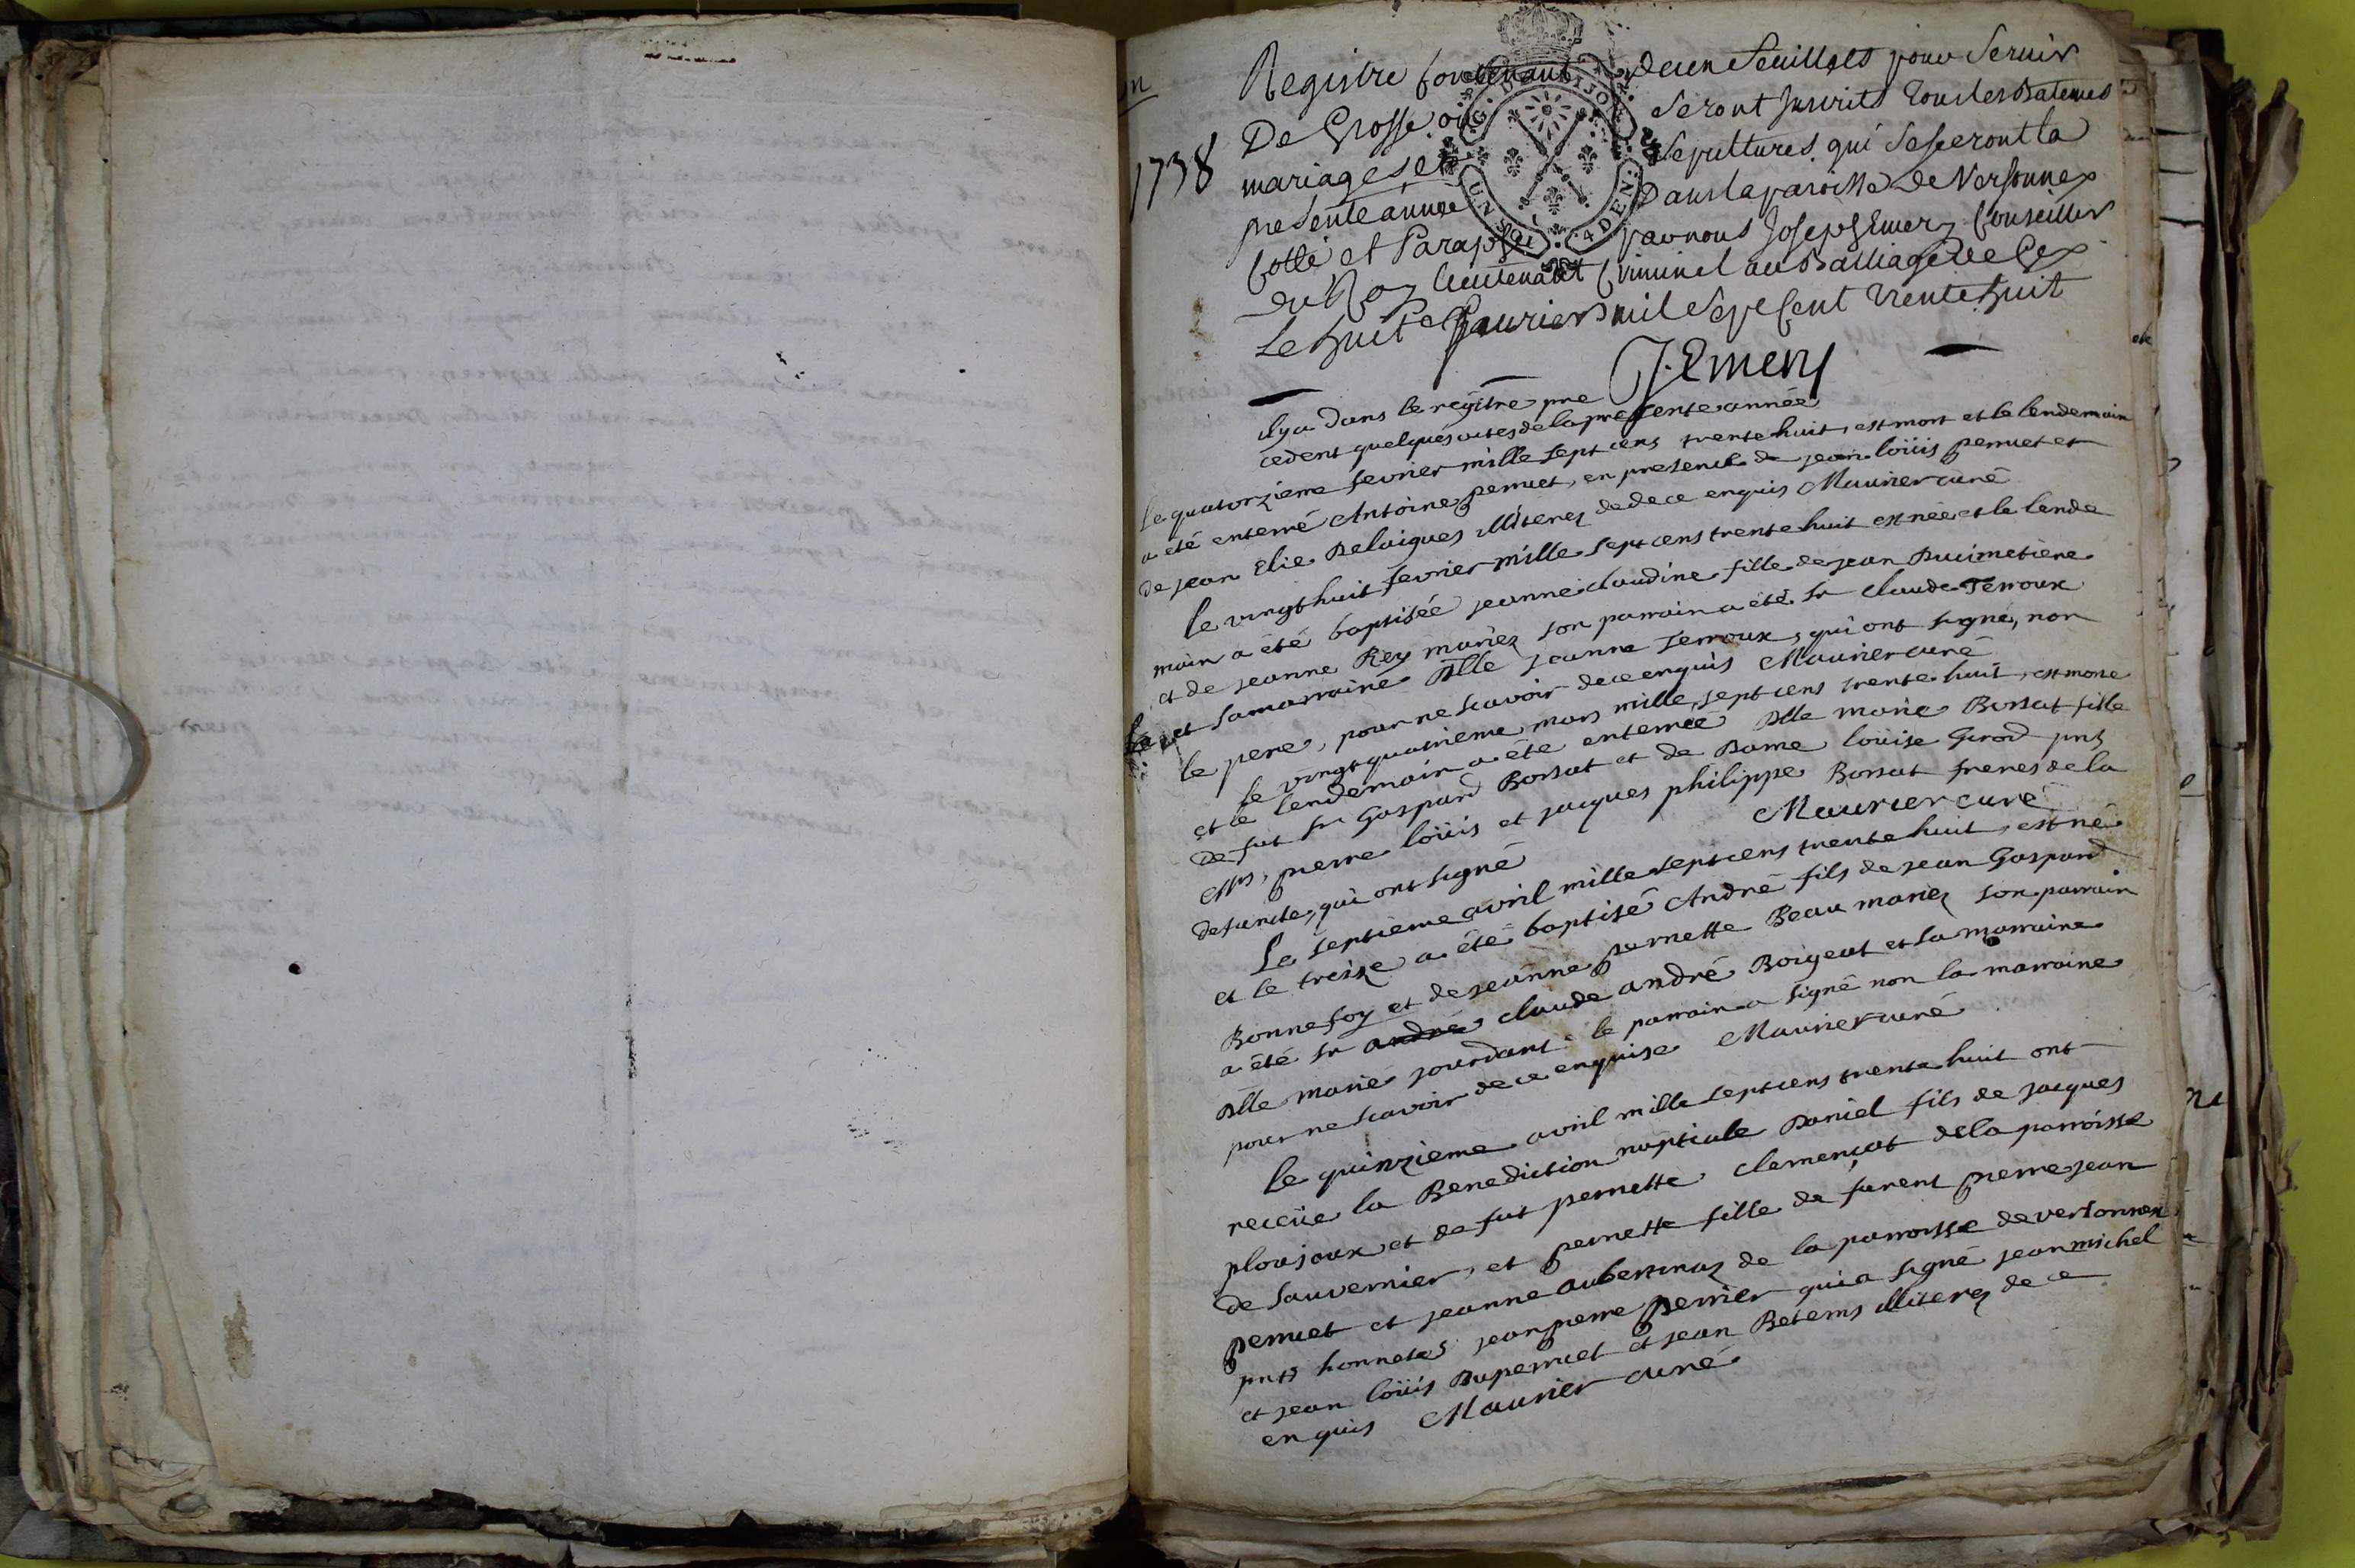 1738
Registre Contenant deux feuillets pour Servir
De Grosse ou Seront Inscrits Tous les Batemes
mariages et Sepultures qui Se feront la
presente année Dans la paroisse de Versonnex
Cotté et Paraphé par nous Joseph Emery Conseiller
du Roy lieutenant Criminel au Balliage de Gex
Le huit feuvrier mil Sept Cent Trente huit
J. Emery
il y a dans le regître pre
cedent quelques actes de la presente année
Le quatorzieme fevrier mille sept cens trente huit, est mort et le lendemain
a été enterré Antoine perruet, en presence de jean loüis perruet et
de jean Elie Delaigues illiterez de ce enquis Maurier curé
Le vingt huit fevrier mille sept cens trente huit est née et le lende
main a été baptisée jeanne claudine fille de jean Ducimetiere
et de jeanne Rey mariez son parrain a été sr claude Terroux
et sa marraine Dlle jeanne Terroux, qui ont signé, non
le pere, pour ne scavoir de ce enquis Maurier curé
le vingt quatrieme mars mille sept cens trente huit, est morte
et le lendemain a été enterrée Dlle marie Borsat fille
De fut sr Gaspard Borsat et de Dame loüise Girod pnts
Mrs, pierre loüis et jacques philippe Borsat freres de la
defuncte, qui ont signé Maurier curé
Le septieme avril mille sept cens trente huit, est né
et le treize a été baptisé André fils de jean Gaspard
Bonnefoy et de jeanne pernette Beau mariez son parrain
a été sr andré claude andré Boigeat et sa marraine
Dlle marie jourdant le parrain a signé non la marraine
pour ne scavoir de ce enquise Maurier curé
Le quinzieme avril mille sept cens trente huit ont
receüe la Benediction nuptiale Daniel fils de jacques
ploujoux et de fut pernette clemençat de la parroisse
de sauvernier, et pernette fille de furent pierre jean
perruet et jeanne de la parroisse de versonnex
pnts honnetes jean pierre perrier qui a signé jean michel
et jean loüis Duperruet et jean Betems illiterez de ce
enquis Maurier curé